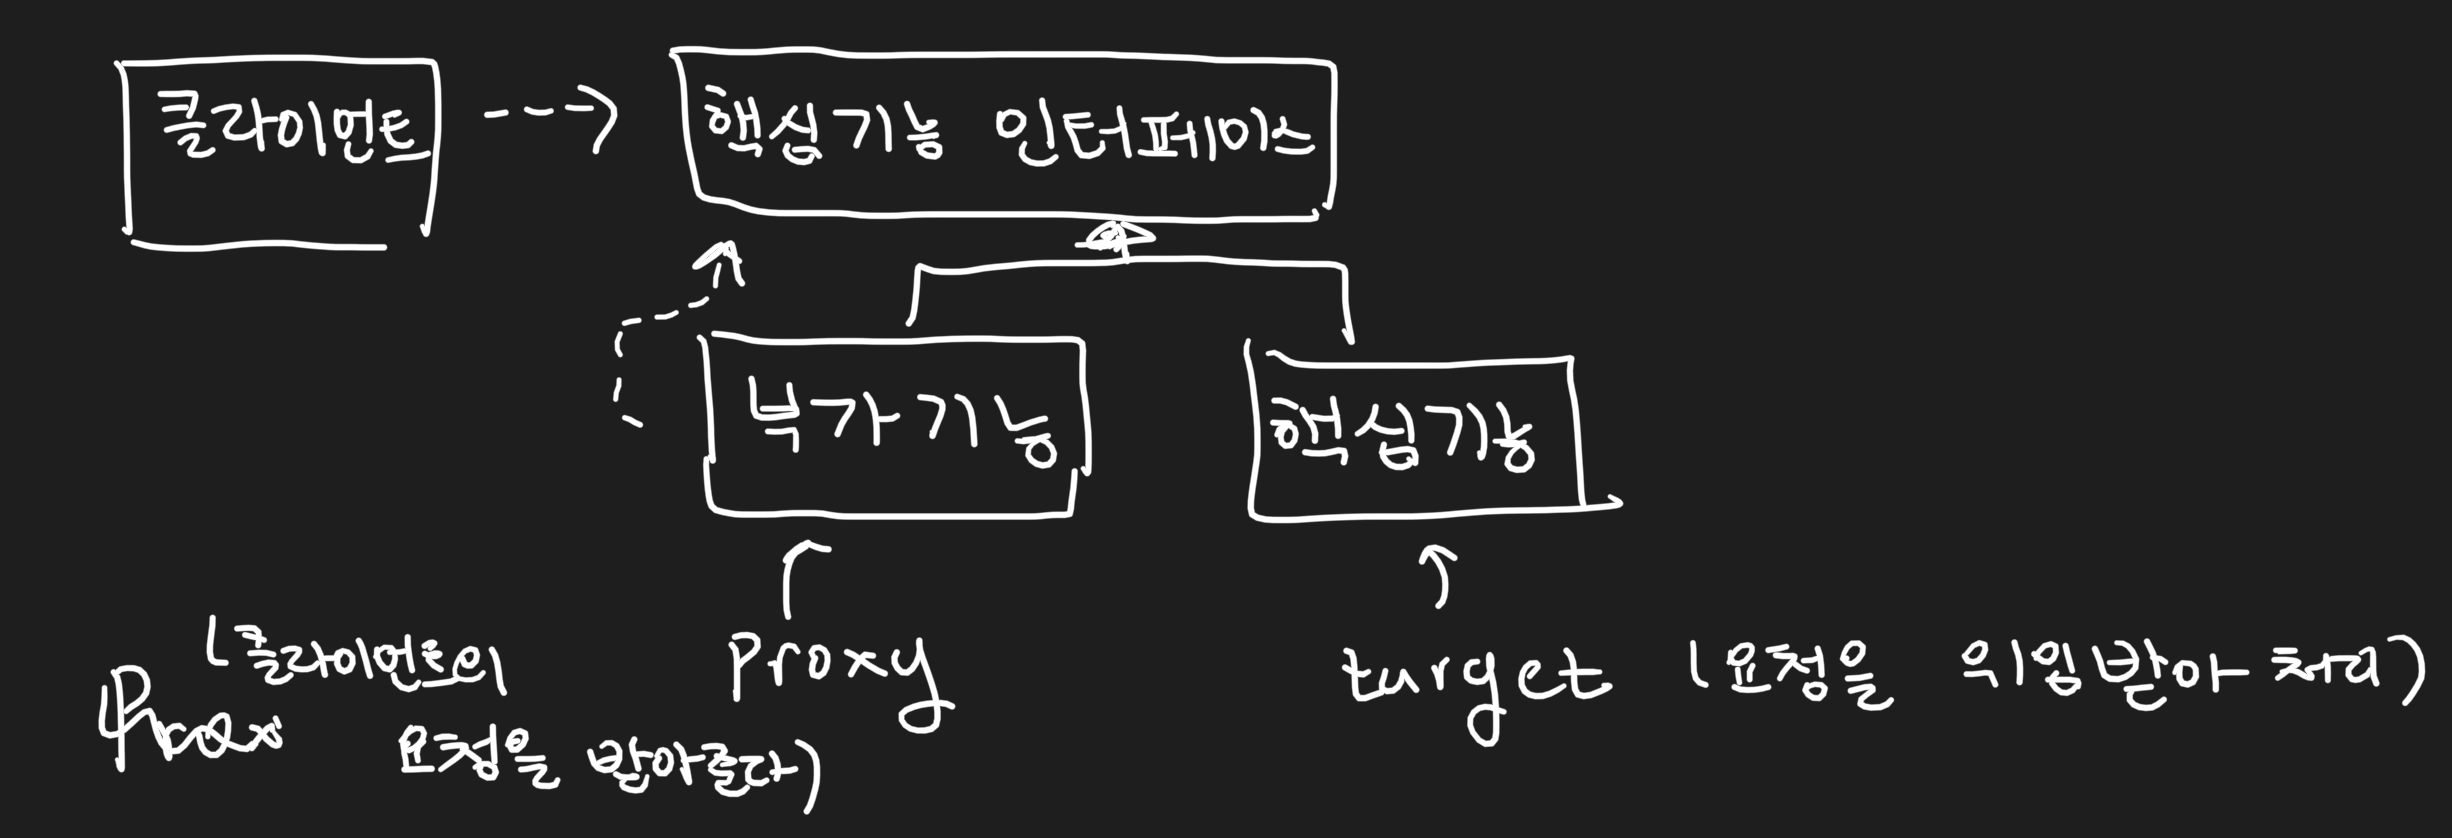 클라이언트
핵심기능 인터페이스
부가기능
핵심기능
(클라이언트의
요청을 받아준다)
Proxy
target (요청을 위임받아 처리)